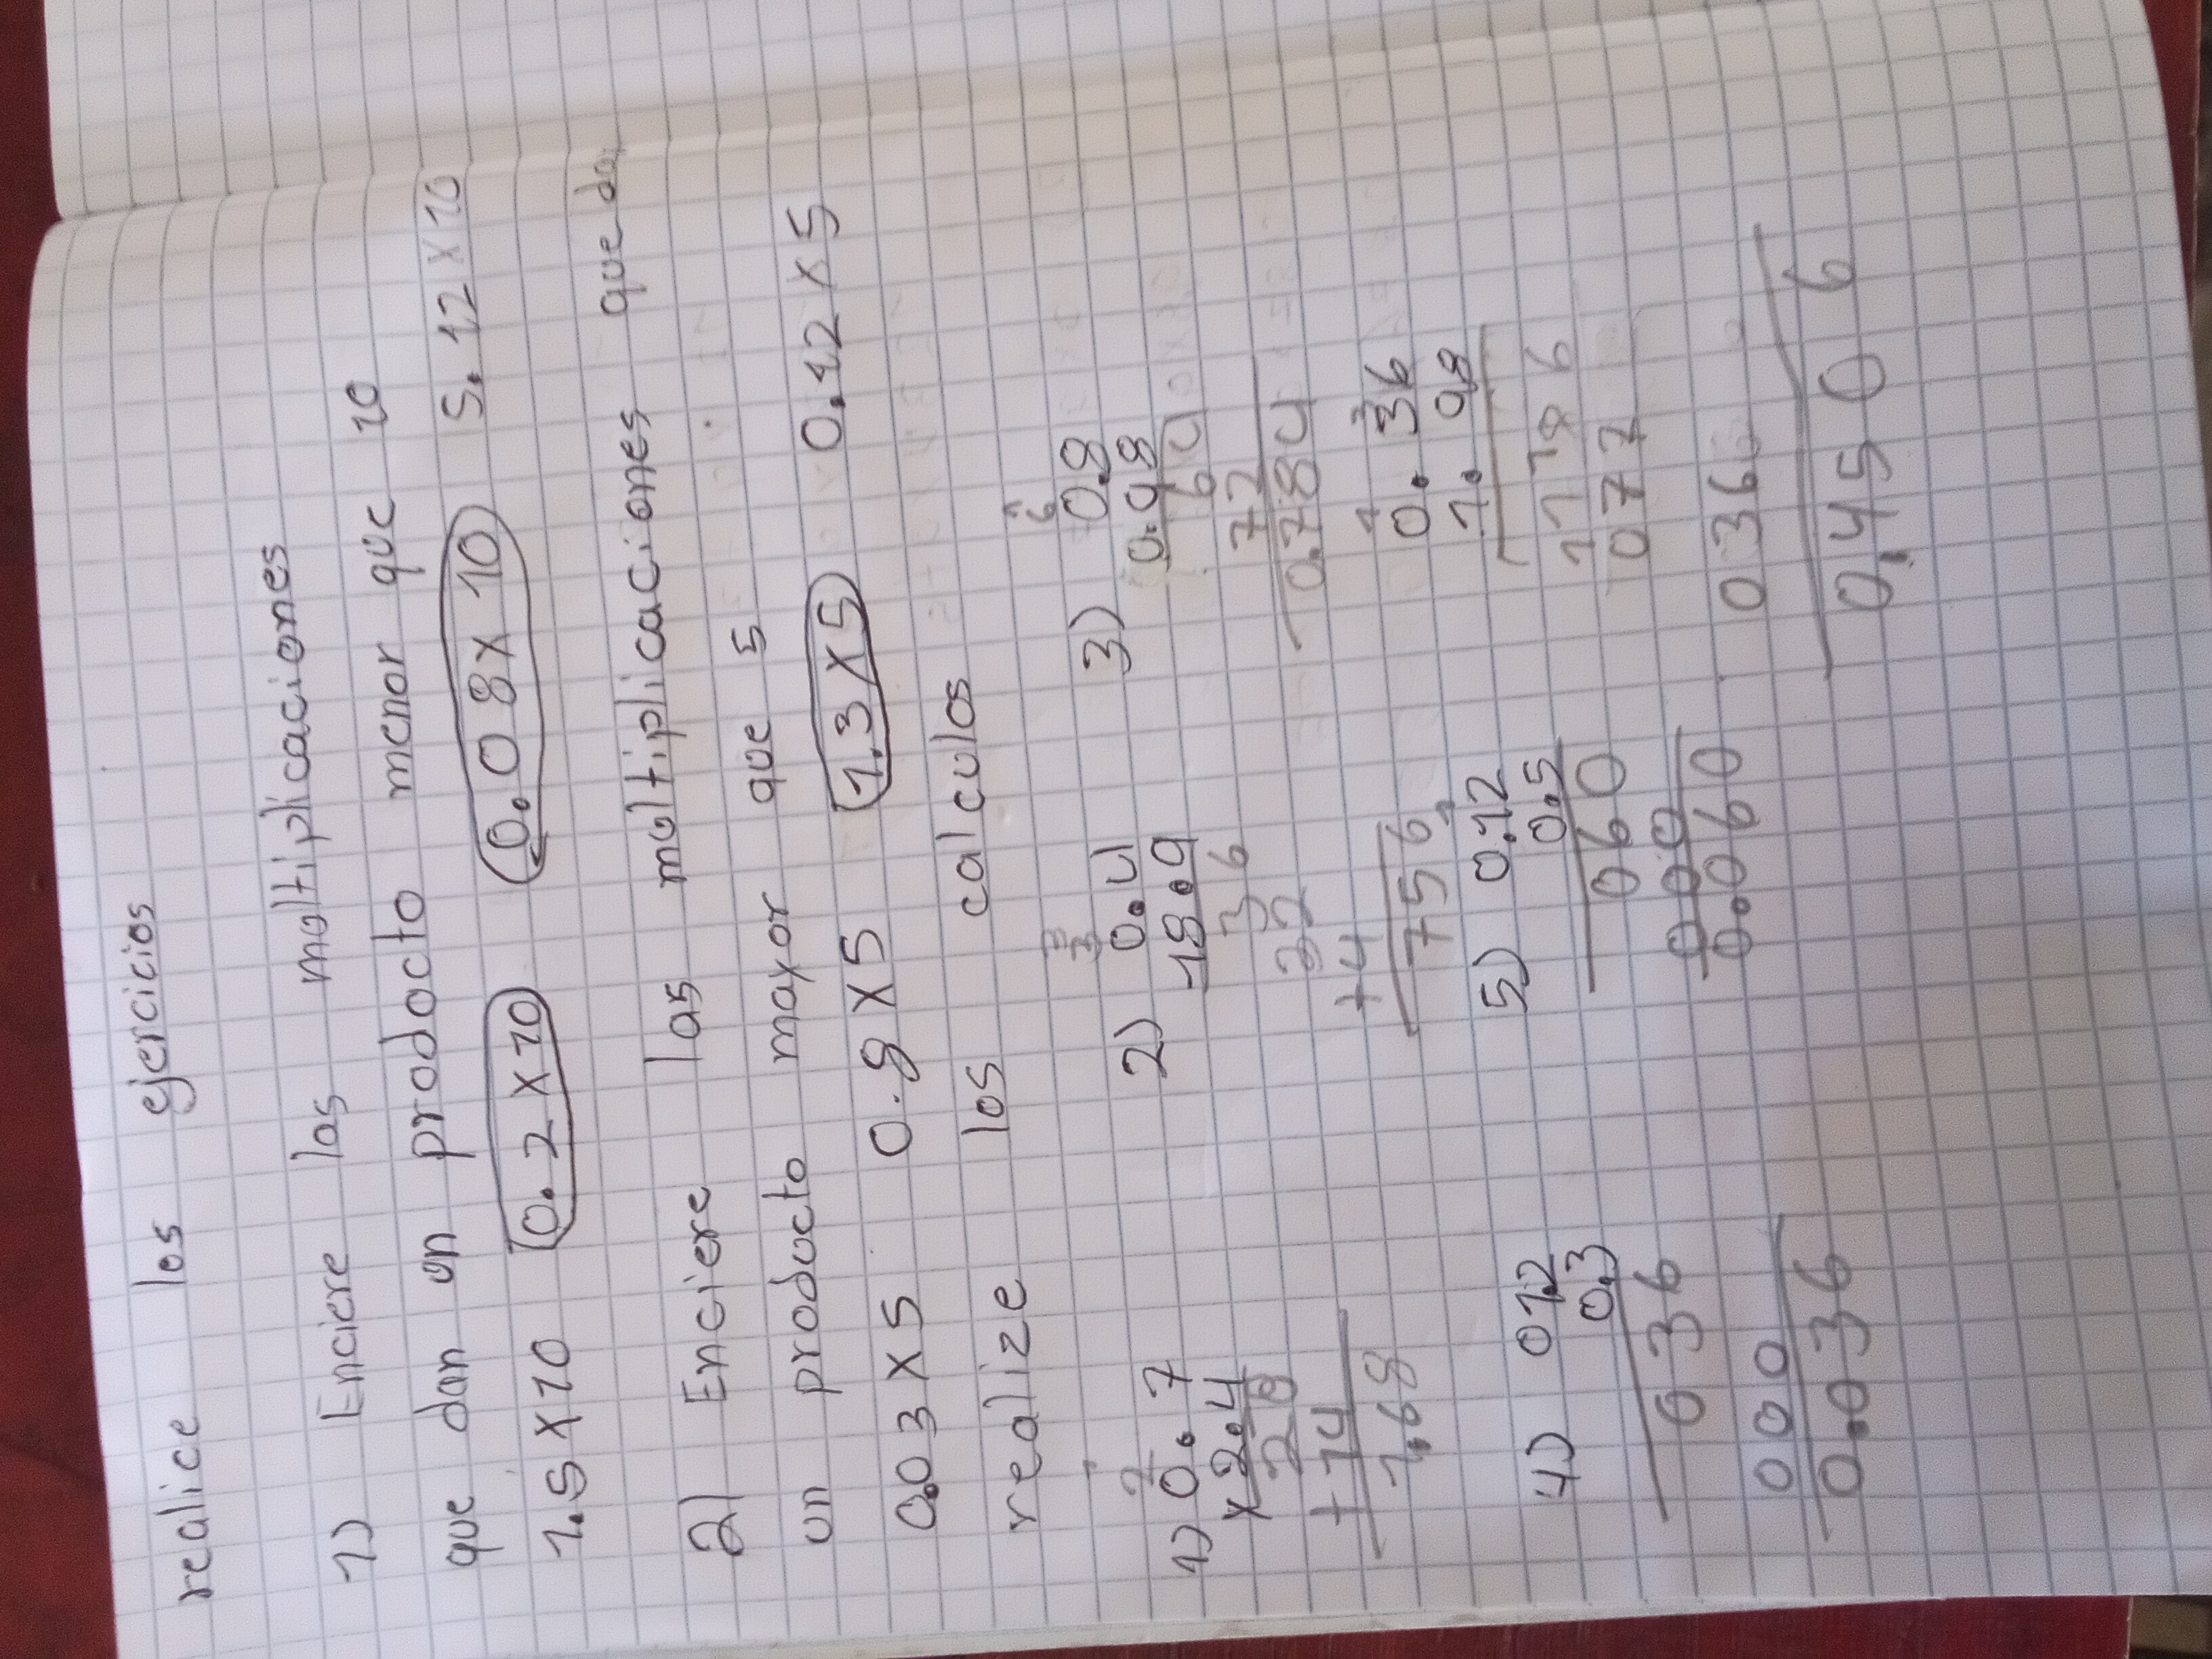 realice los ejercicios
1) Enciere las moltiplicaciones
que dan un prodocto menor que 10
1.5 x 10 0.2 x 10 0.08 x 10 5.12 x 10
2) Enciere las moltiplicaciones que da
un producto maxor que 5
0.03 x 5 0.8 x 5 1.3 x 5 0.12 x 5
realize los calculos
1) 0.7
x 2.4
28
+ 14
1.68
2) 0.4
18.9
36
32
+4
756
3) 0.8
0.98
64
72
0.784
4) 012
0.3
036
000
0.036
5) 0.12
0.5
060
000
0.060
0.36
1.
077
036
0.4506